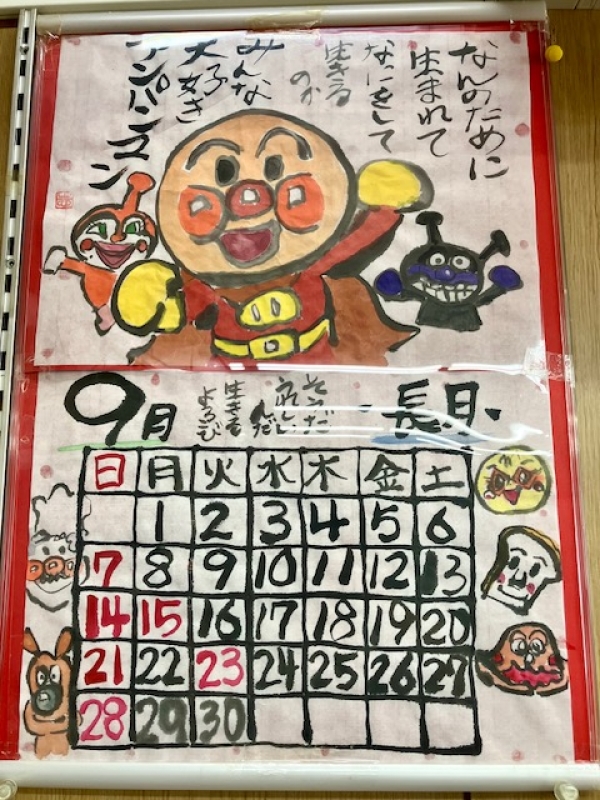 なんのために
生まれて
なにをして
生きる
のか
みんな
大好き
アンパンマン
9月
そうだ
うれしいんだ
生きる
よろこび
長月
日 月 火 水 木 金 土
1 2 3 4 5 6
7 8 9 10 11 12 13
14 15 16 17 18 19 20
21 22 23 24 25 26 27
28 29 30